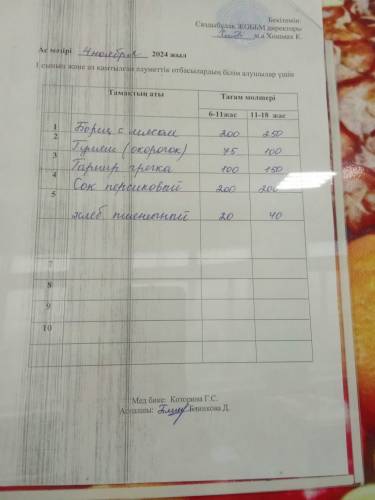 Бекітемін:
Саздыбұлақ ЖОББМ директоры
м.а Хошмах К.
Ас мәзірі 4 ноября 2024 жыл
1 сынып және аз қамтылған әлуметтік отбасылардың білім алушылар үшін
Тамақтың аты Тағам мөлшері
6-11жас 11-18 жас
1 Борщ с мясом 200 250
2 Гуляш (окорочок) 75 100
3 Гарнир гречка 100 150
4 Сок персиковый 200 200
5 хлеб пшеничный 20 40
7
8
9
10
Мед бике: Которина Г.С.
Аспазшы: Блинкова Д.